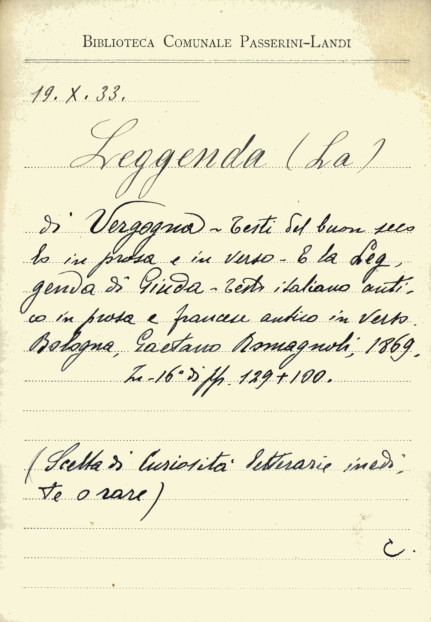 BIBLIOTECA COMUNALE PASSERINI-LANDI
19. X. 33.
Leggenda (La)
di Vergogna - Testi del buon seco
lo in prosa e in verso - E la Leg,
genda di Giuda - Testo italiano anti-
co in prosa e francese antico in verso.
Bologna, Gaetano Romagnoli, 1869,
In-16° di pp. 129+100.
(Scelta di Curiosità letterarie inedi,
te o rare)
C.